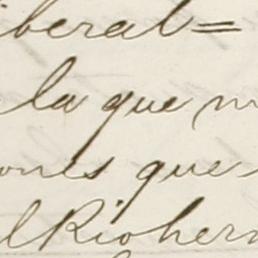 iberal=
la que m
ones que
l Riohern